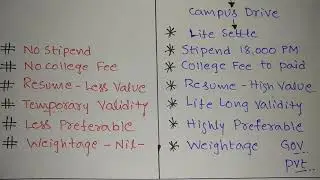 # No Stipend
# No College Fee
# Resume - Less Value
# Temporary Validity
# Less Preferable
# Weightage - Nil -
Campus Drive
* Life Settle
* Stipend 18,000 PM
* College Fee to paid
* Resume - High Value
* Life Long Validity
* Highly Preferable
* Weightage Gov
Pvt..